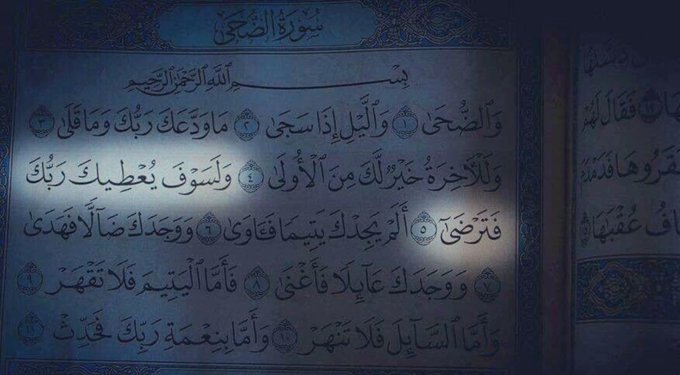 سُورَةُ الضُّحَىٰ
بِسْمِ ٱللَّهِ ٱلرَّحْمَٰنِ ٱلرَّحِيمِ
وَٱلضُّحَىٰ ١ وَٱلَّيْلِ إِذَا سَجَىٰ ٢ مَا وَدَّعَكَ رَبُّكَ وَمَا قَلَىٰ ٣
وَلَلْأَخِرَةُ خَيْرٌ لَّكَ مِنَ ٱلْأُولَىٰ ٤ وَلَسَوْفَ يُعْطِيكَ رَبُّكَ
فَتَرْضَىٰٓ ٥ أَلَمْ يَجِدْكَ يَتِيمًا فَـَٔاوَىٰ ٦ وَوَجَدَكَ ضَآلًّا فَهَدَىٰ
٧ وَوَجَدَكَ عَآئِلًا فَأَغْنَىٰ ٨ فَأَمَّا ٱلْيَتِيمَ فَلَا تَقْهَرْ ٩
وَأَمَّا ٱلسَّآئِلَ فَلَا تَنْهَرْ ١٠ وَأَمَّا بِنِعْمَةِ رَبِّكَ فَحَدِّثْ ١١
فَقَالَ لَهُمْ
فَدَمْدَمَ
عُقْبَٰهَا